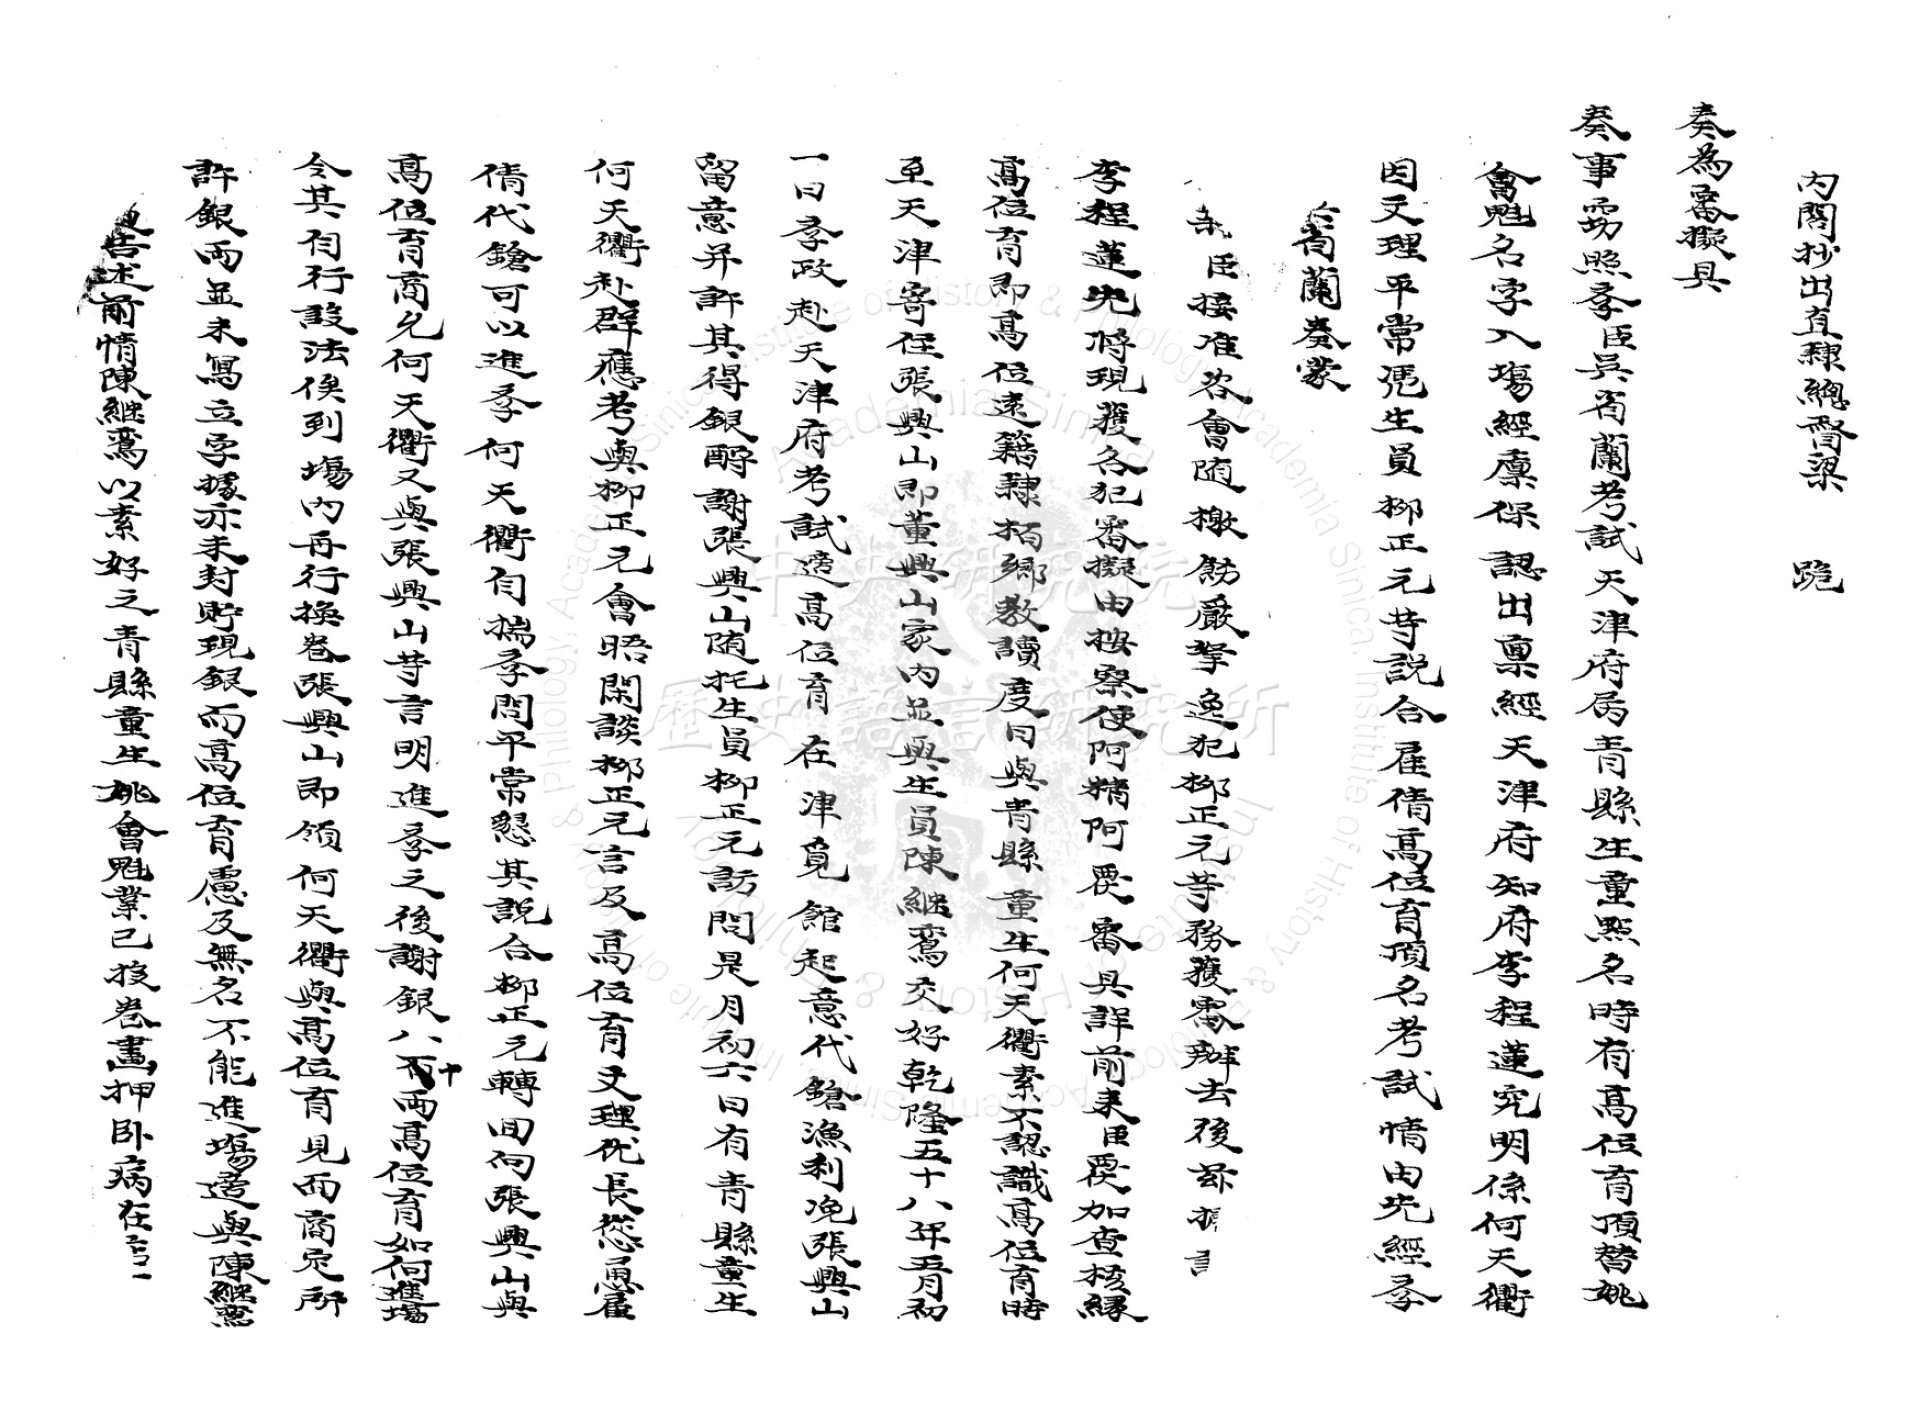 內閣抄出直隸總督梁 跪
奏為審擬具
奏事竊照孝臣吳省蘭考試天津府屬青縣生童點名時有高位育頂替姚
會魁名字入場經廩保認出稟經天津府知府李程蓮究明係何天衢
因文理平常凂生員柳正元等説合雇倩高位育頂名考試情由先經孝
省蘭奏蒙
臣接准咨會随檄飭嚴拏逸犯柳正元等務獲審辦去後茲據
李程蓮先將現獲各犯審擬由按察使阿精阿覆審具詳前来臣覆加查核緣
高位育即高位遠籍隸栢鄉教讀度日與青縣童生何天衢素不認識高位育時
至天津寄住張興山即董興山家內並與生員陳継鸞交好乾隆五十八年五月初
一日孝政赴天津府考試適高位育在津覓館起意代鎗漁利凂張興山
留意并許其得銀酧謝張興山随托生員柳正元訪問是月初六日有青縣童生
何天衢赴群應考與柳正元會晤閑談柳正元言及高位育文理优長慫恿雇
倩代鎗可以進孝何天衢自揣孝問平常懇其説合柳正元轉回向張興山與
高位育商允何天衢又與張興山等言明進孝之後謝銀八十兩高位育如何進塲
令其自行設法俟到塲內再行換卷張興山即領何天衢與高位育見而商定所
許銀兩並未寫立字據亦未封貯現銀而高位育慮及無名不能進塲適與陳継鸞
告述前情陳継鸞以素好之青縣童生姚會魁業已投卷畫押卧病在